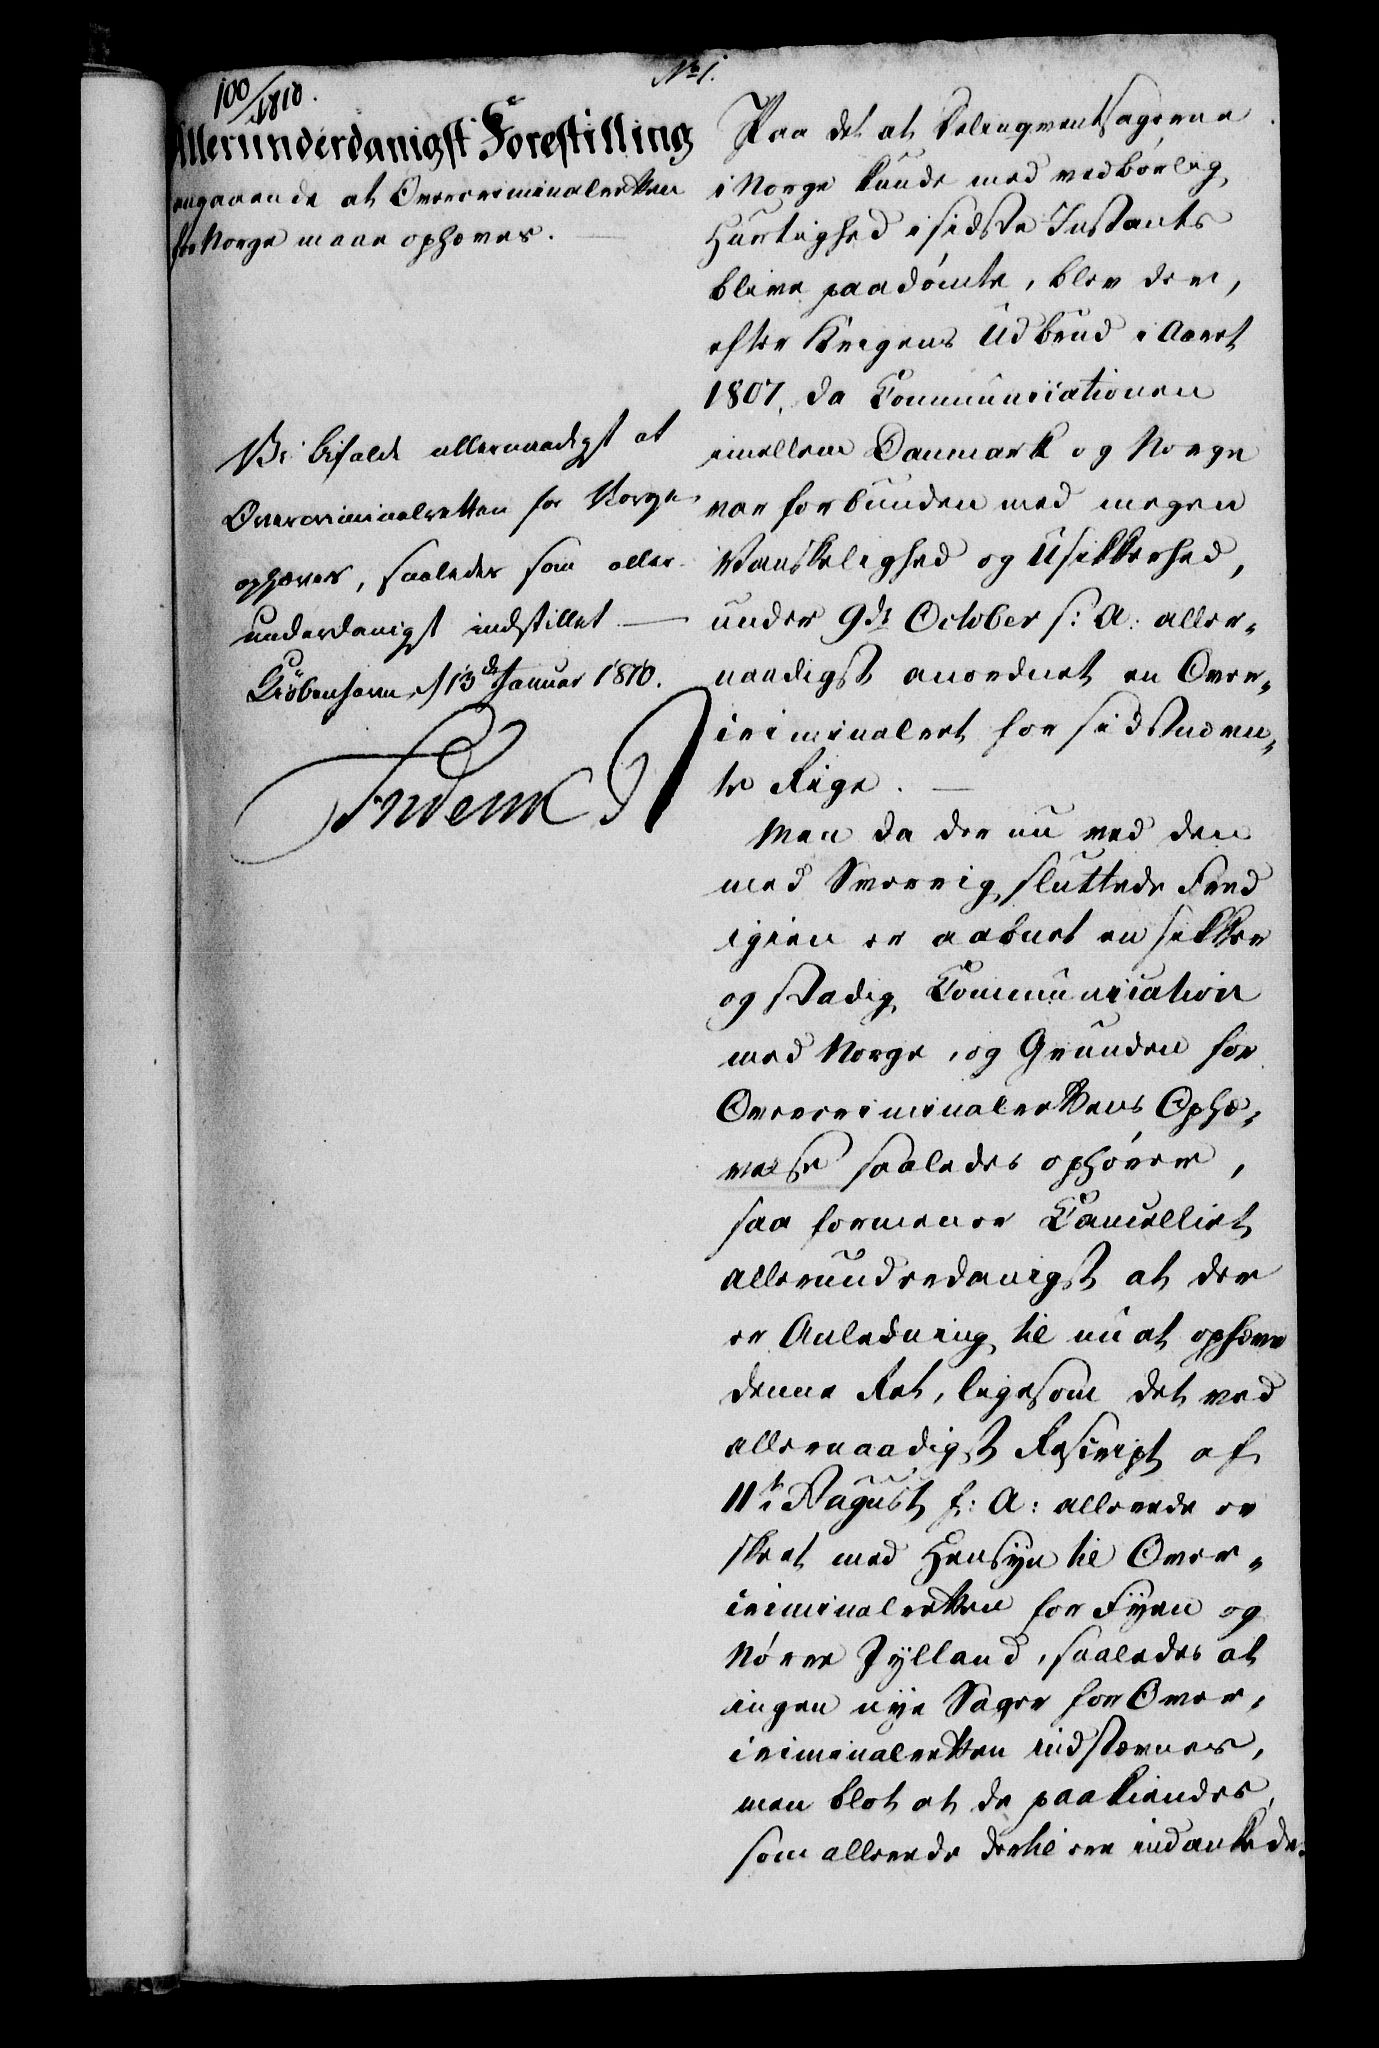 No 1.
100/1810.
Allerunderdanigst Forestilling
angaaende at Overcriminalretten
for Norge maae ophæves.
Vi bifalde allernaadigst at
Overcriminalretten for Norge
ophæves, saaledes som aller
underdanigst indstillet
Kiöbenhavn d 13de Januar 1810.
Frederik R
Paa det at Delinqventsagerne
i Norge kunde med vedbörlig
Hurtighed i sidste Instants
blive paadömte, blev der,
efter Krigens Udbrud i Aaret
1807, da Communicationen
imellem Danmark og Norge
var forbunden med megen
Vanskelighed og Usikkerhed,
under 9de October s: A: aller-
naadigst anordnet en Over-
criminalret for sidstnævn-
te Rige.
Men da der nu ved den
med Sverrig sluttede Fred
igien er aabnet en sikker
og stadig Communication
med Norge, og Grunden for
Overcriminalrettens Ophæ-
velse saaledes ophörer,
saa formener Cancelliet
allerunderdanigst at der
er Anledning til nu at ophæve
denne Ret, ligesom det ved
allernaadigst Rescript af
11te August f: A: allerede er
skeet med Hensyn til Over-
criminalretten for Fyen og
Nörre Jylland, saaledes at
ingen nye Sager for Over-
criminalretten indstævnes,
men blot at de paakiendes,
som allerede dertil ere indankede.